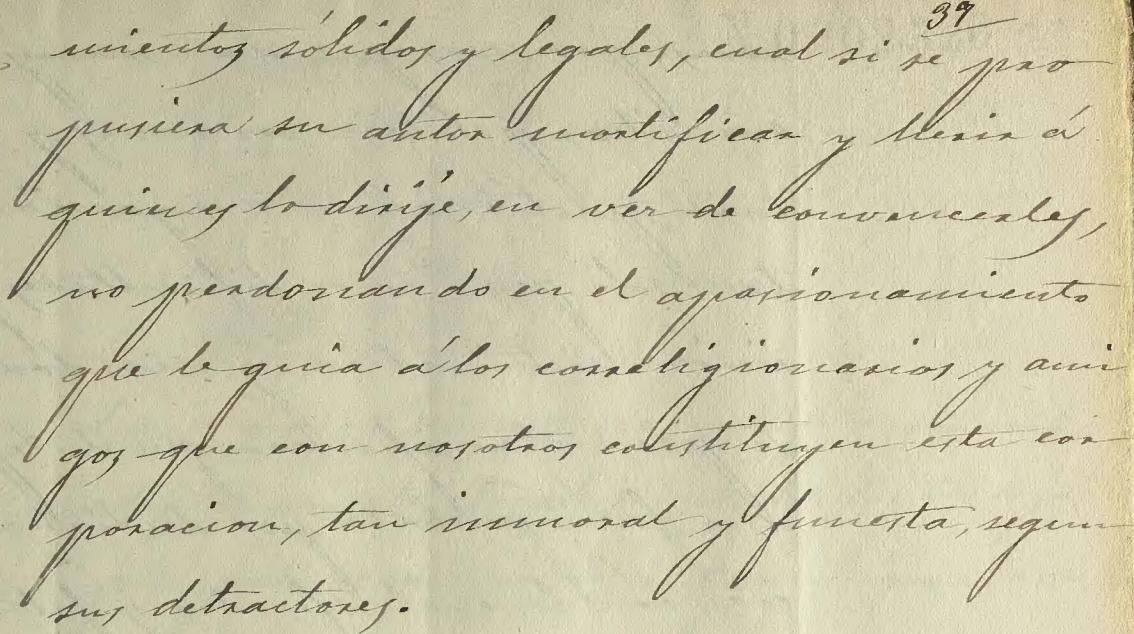 37
mientos sólidos y legales, cual si se pro
pusiera su autor mortificar y herir á
quienes lo dirije, en vez de convencerles,
no perdonando en el apasionamiento
que le guia á los correligionarios y ami
gos que con nosotros constituyen esta cor
poracion, tan inmoral y funesta, segun
sus detractores.